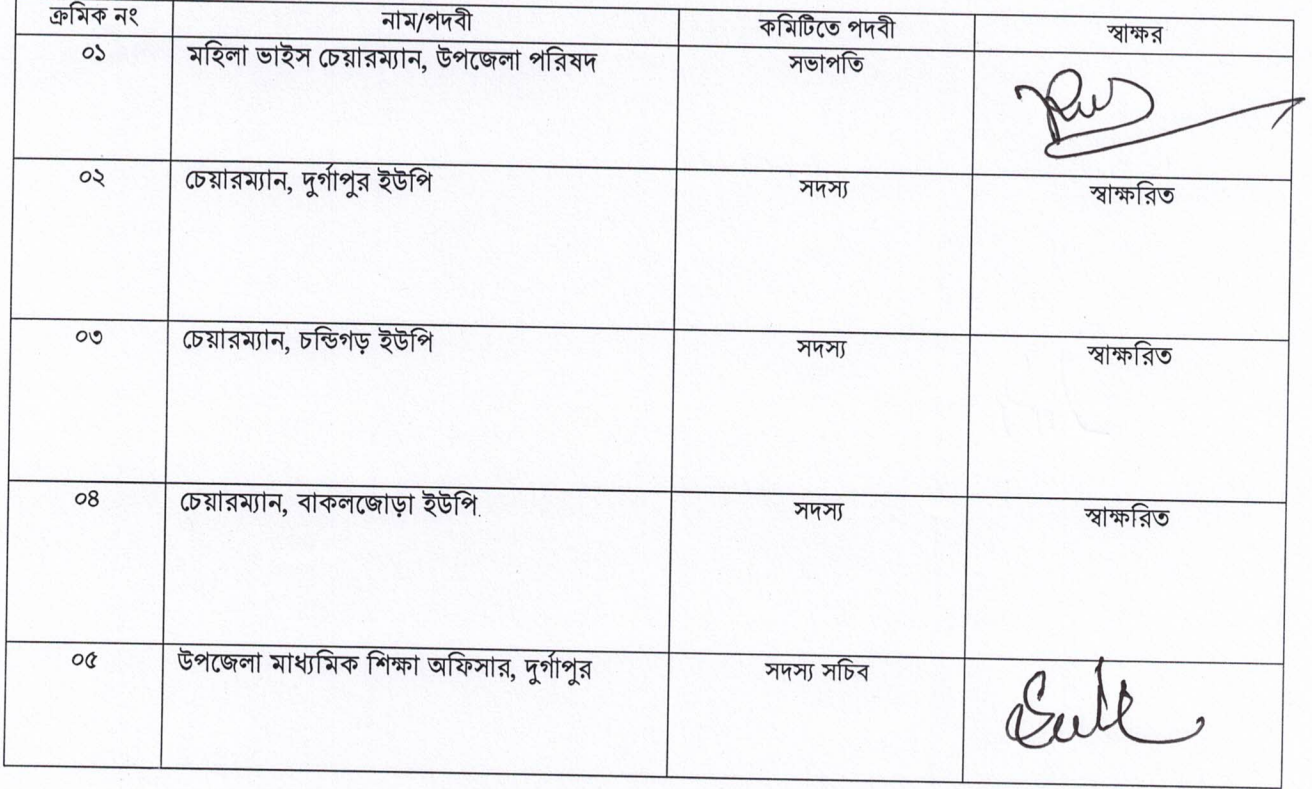 ক্রমিক নং নাম/পদবী কমিটিতে পদবী স্বাক্ষর
০১ মহিলা ভাইস চেয়ারম্যান, উপজেলা পরিষদ সভাপতি
০২ চেয়ারম্যান, দুর্গাপুর ইউপি সদস্য স্বাক্ষরিত
০৩ চেয়ারম্যান, চন্ডিগড় ইউপি সদস্য স্বাক্ষরিত
০৪ চেয়ারম্যান, বাকলজোড়া ইউপি সদস্য স্বাক্ষরিত
০৫ উপজেলা মাধ্যমিক শিক্ষা অফিসার, দুর্গাপুর সদস্য সচিব